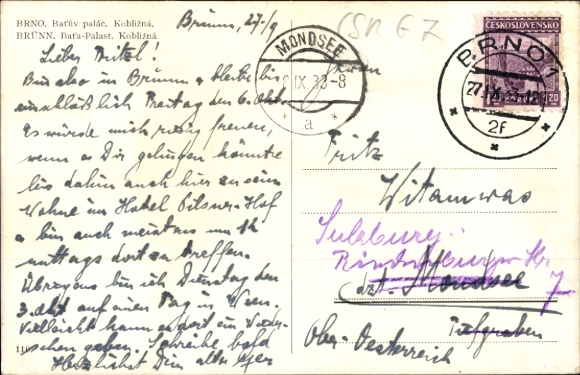 BRNO. Baťův palác, Kobližná.
BRÜNN. Baťa-Palast, Kobližná.
Brünn, 27/9
ČSR E 7
Lieber Fritzl!
Bin also in Brünn & bleibe bis
einschließlich Freitag den 6. Okt.
Es würde mich riesig freuen,
wenn es Dir gelingen könnte
bis dahin auch hier zu sein
Wohne im Hotel Pilsner-Hof
& bin auch meistens um
mittags dort zu treffen.
Übrigens bin ich Dienstag den
3. Okt auf einen Tag in Wien.
Vielleicht kann es dort ein Wieder-
sehen geben. Schreibe bald
Herzlichst Dein alter
MONDSEE
IX. 33-8
a
BRNO 1
27. IX.
2f
ČESKOSLOVENSKO
1.20 1.20
Herrn
Fritz
Witamwas
Salzburg
dzt. Mondsee
7
Tiefgraben
Ober-Oesterreich